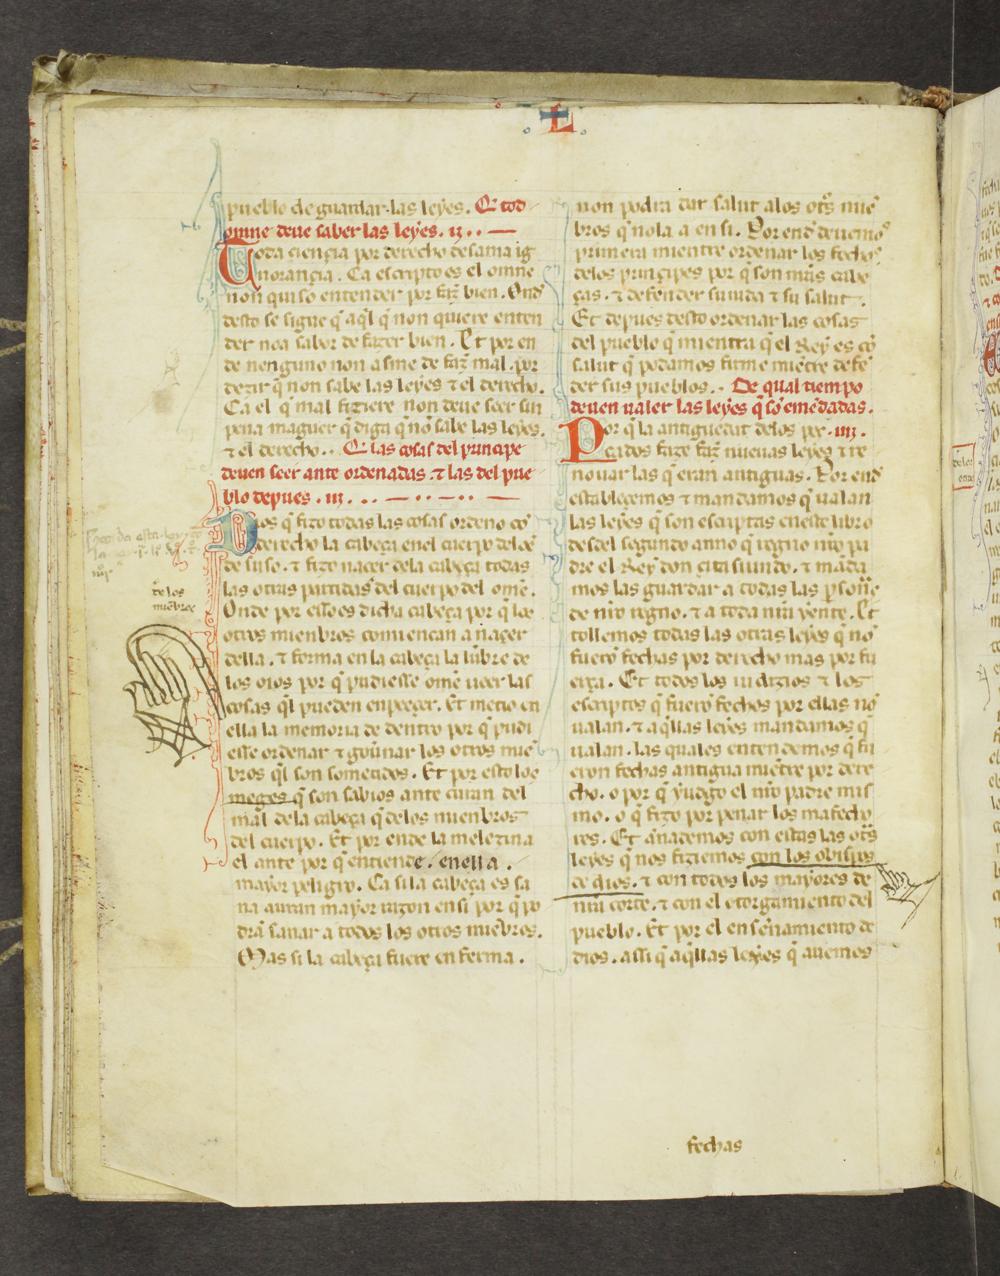 L
pueblo de guardar las leyes. Q̄ tod
omne deue saber las leyes. ij..
Toda ciençia por derecho desama ig
norançia. Ca escripto es el omne
non quiso entender por faz̃ bien. Ond̃
desto se sigue q̃ aq̃l q̃ non quiere enten
der no a sabor de fazer bien. Et por en
de nenguno non asme de faz̃ mal. por
dezir q̃ non sabe las leyes ⁊ el derecho.
Ca el q̃ mal fiziere non deue seer sin
pena maguer q̃ diga q̃ nõ sabe las leyes.
⁊ el derecho.. Q̄ las cosas del principe
deuen seer ante ordenadas. ⁊ las del pue
blo depues. iij...
Dios q̃ fizo todas las cosas ordeno cõ
derecho la cabeça enel cuerpo del oẽ
de suso. ⁊ fizo nacer dela cabeça todas
las otras partidas del cuerpo del omẽ.
Onde por esso es dicha cabeça por q̃ los
otros miembros comiencan a naçer
della. ⁊ forma en la cabeça la lũbre de
los oios por q̃ pudiesse omẽ ueer las
cosas q̃l pueden enpeçer. Et metio en
ella la memoria de dentro por q̃ pudi
esse ordenar ⁊ gou̾nar los otros miẽ
bros q̃l son sometidos. Et por esto los
meges q̃ son sabios ante curan del
mal dela cabeça q̃ delos miembros
del cuerpo. Et por ende la melezina
el ante por q̃ entiende. enella.
mayor peligro. Ca si la cabeça es sa
na auran mayor razon en si por q̃ po
drã sanar a todos los otros miẽbros.
Mas si la cabeça fuere enferma.
de los
miẽbros
non podra dar salut alos otr̃s mie᷈
bros q̃ nola a en si. Por end̃ deuemos
primera mientre ordenar los fechos
delos prinçipes por q̃ son mãs cabe
ças. ⁊ defender su uida ⁊ su salut.
Et depues desto ordenar las cosas
del pueblo q̃ mientra q̃ el Rey es cõ
salut q̃ podamos firme miẽtre defẽ
der sus pueblos.. De qual tiempo
deuen ualer las leyes q̃ sõ emẽdadas.
Por q̃ la antiguedat delos pe᷈. iiij.
cados faze faz̃ nueuas leyes ⁊ re
nouar las q̃ eran antiguas. Por end̃
establecemos ⁊ mandamos q̃ ualan
las leyes q̃ son escriptas eneste libro
desdel segundo anno q̃ regno nr̃o pa
dre el Rey don çitasiundo. ⁊ mãda
mos las guardar a todas las p̱sonas
de nr̃o regno. ⁊ a toda nr̃a yente. Et
tollemos todas las otras leyes q̃ no᷈
fuerõ fechas por derecho mas por fu
erça. Et todos los iudizios ⁊ los
escriptos q̃ fuerõ fechos por ellas nõ
ualan. ⁊ aq̃llas leyes mandamos q̃
ualan. las quales entendemos q̃ fu
eron fechas antigua miẽtre por dere
cho. o por q̃ yudgo el nr̃o padre mis
mo. o q̃ fizo por penar los mafecho
res. Et añademos con estas las otr̃s
leyes q̃ nos fiziemos con los obispos
de dios. ⁊ con todos los mayores de
nr̃a corte. ⁊ con el otorgamiento del
pueblo. Et por el enseñamiento de
dios. assi q̃ aq̃llas leyes q̃ auemos
fechas